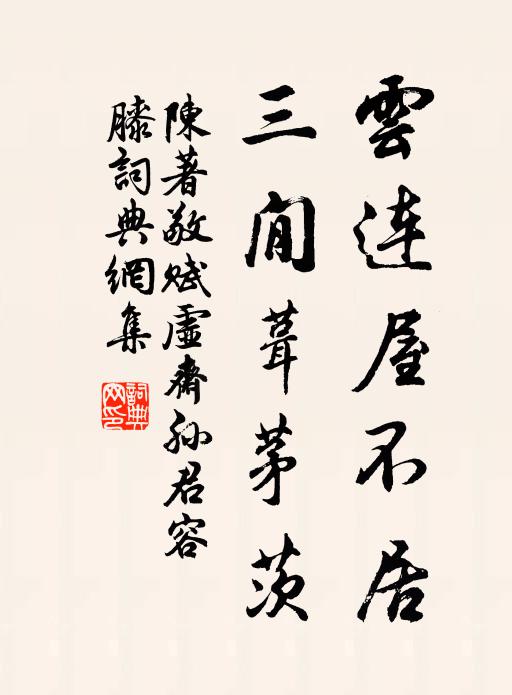 雲連屋不居
三間葺茅茨
陳著敬賦虛齋孫君容
膝詞典網集
詞典網印